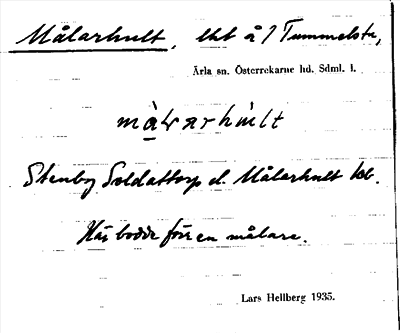 Målarhult, lht å 7 Tummelsta,
Ärla sn. Österrekarne hd. Sdml. l.
Stenby Soldattorp el. Målarhult kb.
Här bodde förr en målare.
Lars Hellberg 1935.